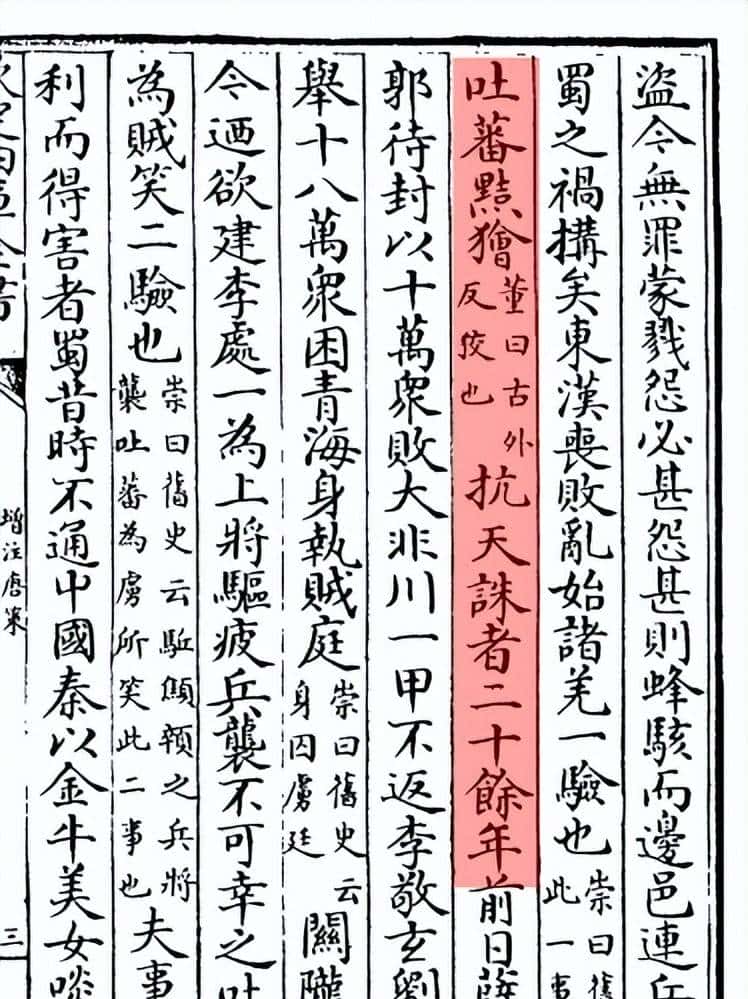 盜今無罪蒙戮怨必甚怨甚則蜂駭而邊邑連
蜀之禍搆矣東漢喪敗亂始諸羌一驗也崇曰舊此一事
吐蕃黠獪董曰古外反狡也抗天誅者二十餘年前日薛
郭待封以十萬衆敗大非川一甲不返李敬玄劉
舉十八萬衆困青海身執賊庭崇曰舊史云身囚虜廷關隴
今迺欲建李處一為上將驅疲兵襲不可幸之吐
為賊笑二驗也崇曰舊史云駈顦顇之兵將襲吐蕃為虜所笑此二事也夫事
利而得害者蜀昔時不通中國秦以金牛美女啖
增注唐策
三